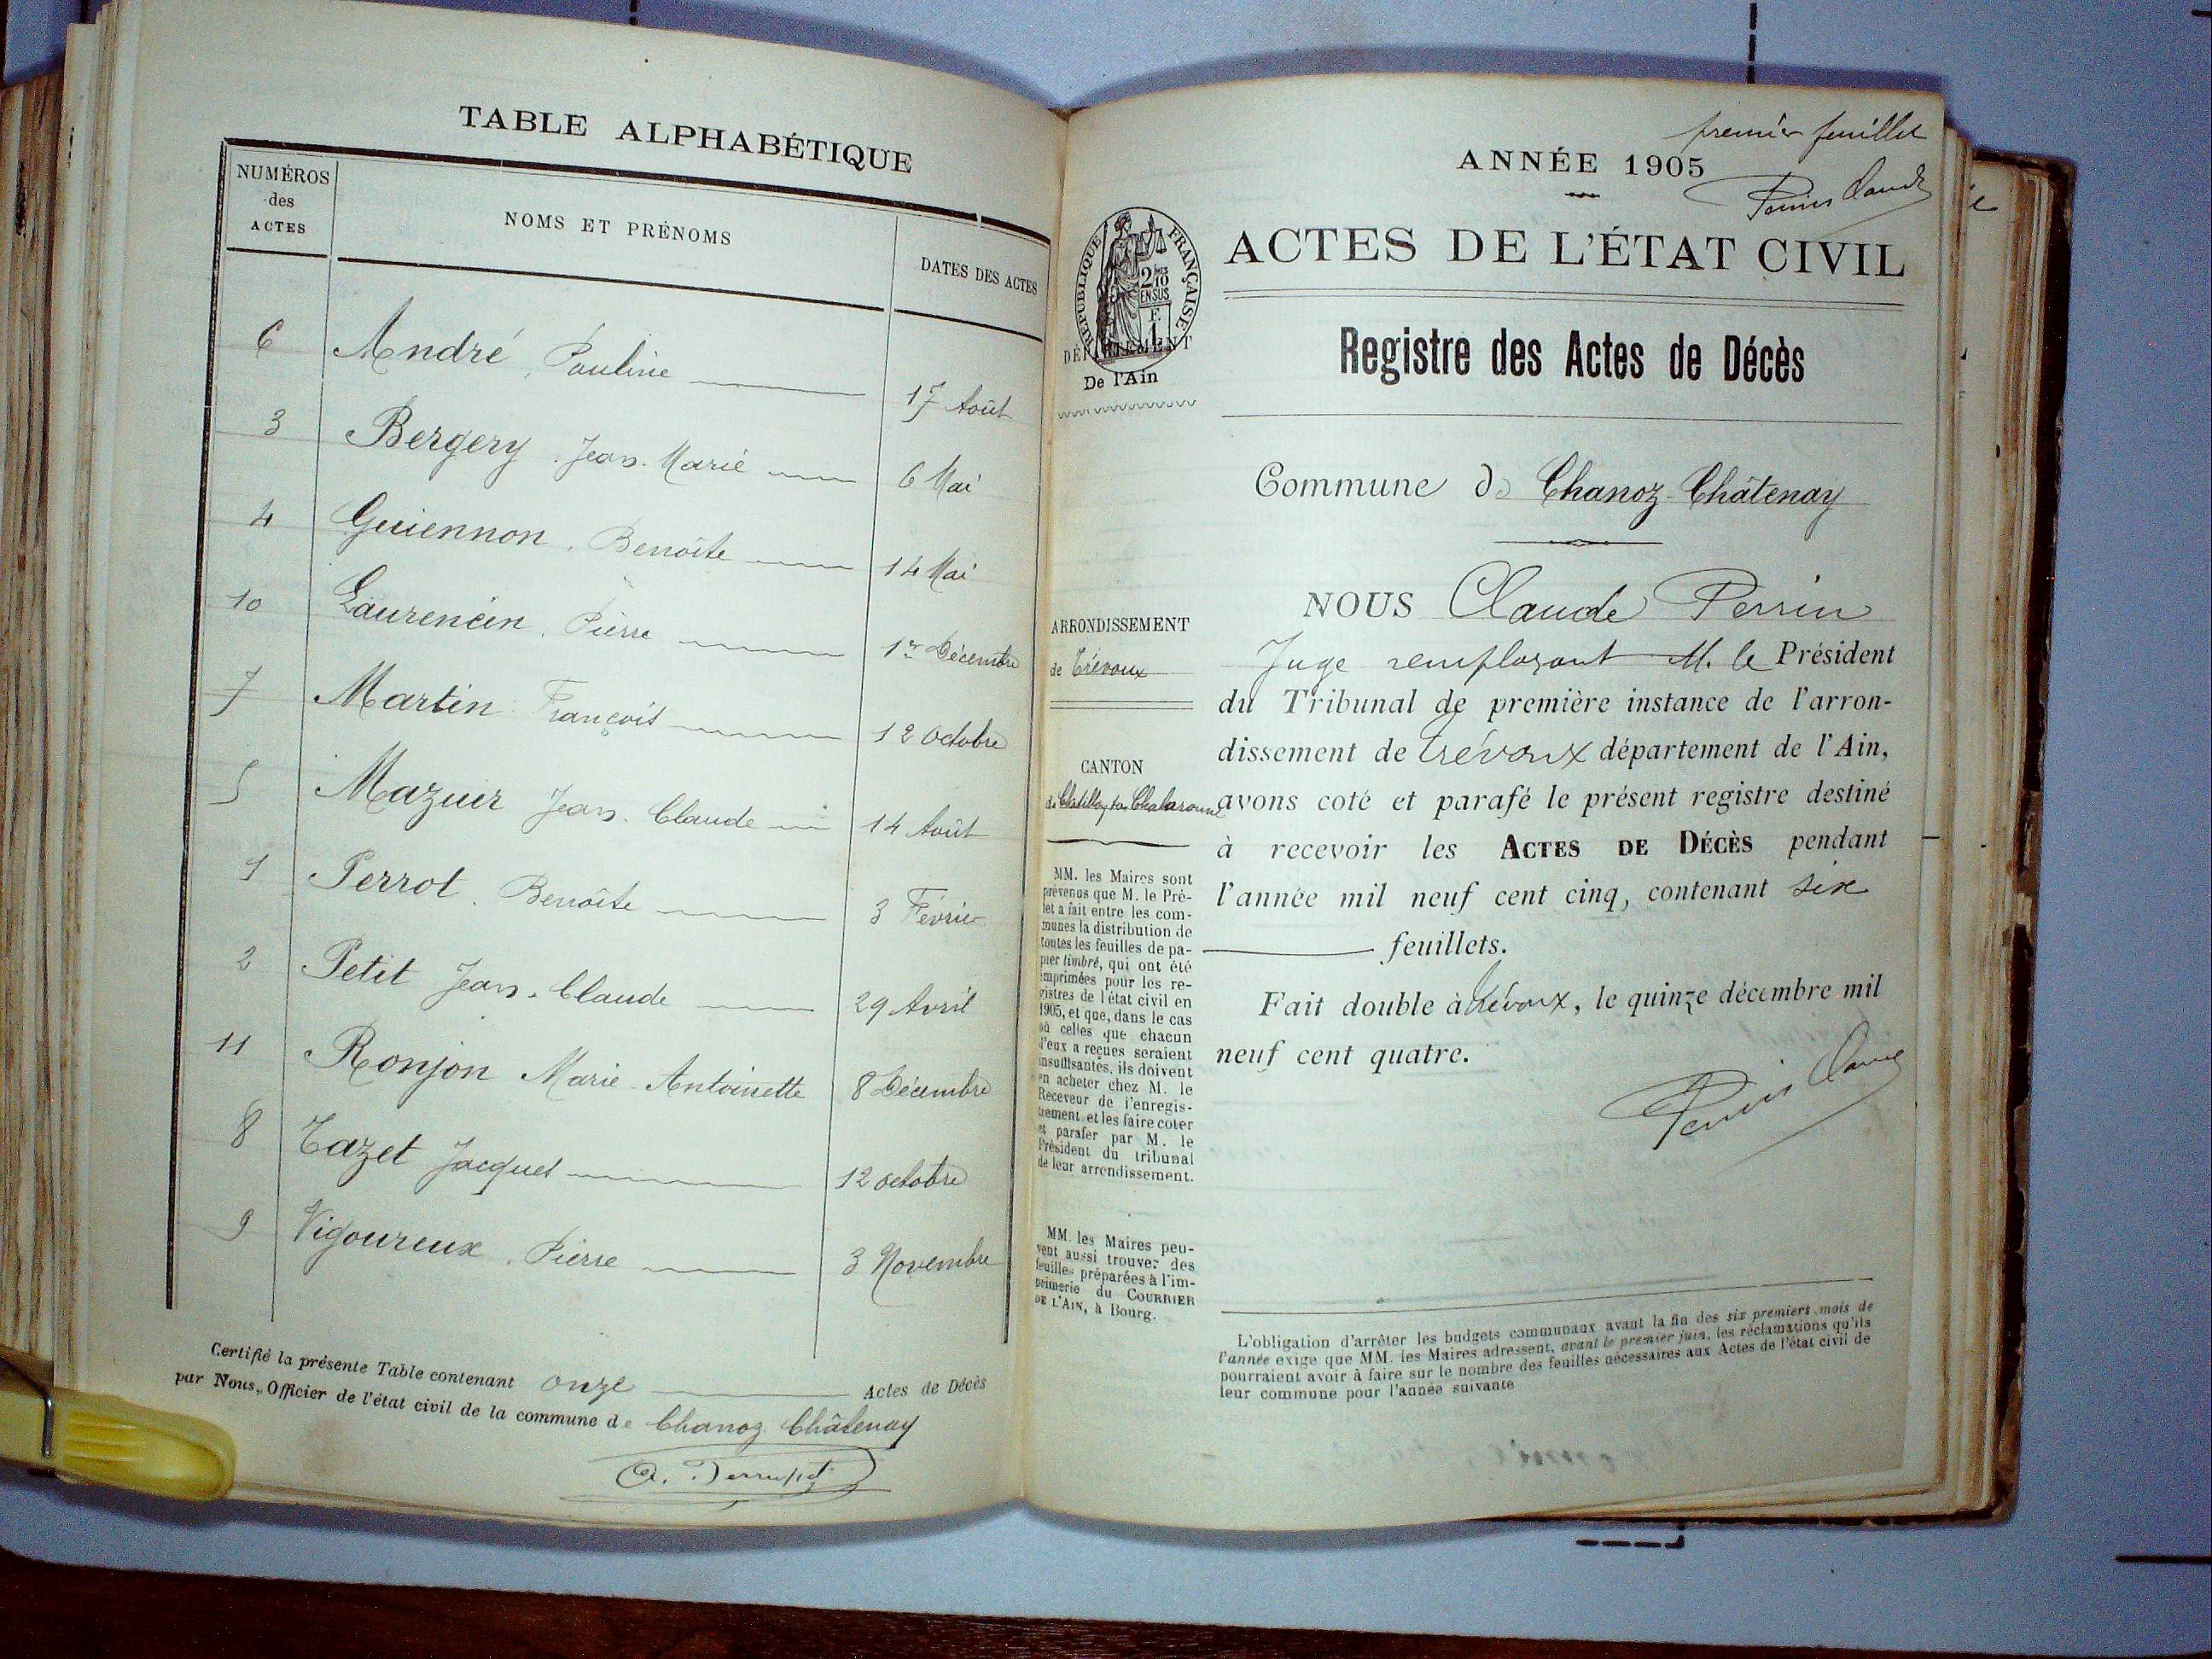 TABLE ALPHABÉTIQUE
NUMÉROS
des
ACTES
NOMS ET PRÉNOMS
DATES DES ACTES
6 André, Pauline 17 Août
3 Bergery, Jean-Marie 6 Mai
4 Guiennon, Benoîte 14 Mai
10 Laurencin, Pierre 1er Décembre
7 Martin François 12 Octobre
5 Mazuir Jean-Claude 14 Août
1 Perrot, Benoîte 3 Février
2 Petit Jean-Claude 29 Avril
11 Ronjon Marie-Antoinette 8 Décembre
8 Tazet Jacques 12 octobre
9 Vigoureux, Pierre 3 Novembre
Certifié la présente Table contenant onze Actes de Décès
par Nous, Officier de l'état civil de la commune de Chanoz Châtenay
premier feuillet
ANNÉE 1905
Perrin Claude
RÉPUBLIQUE FRANÇAISE
2/10
EN SUS
F.
1
DÉPARTEMENT
De l'Ain
ACTES DE L'ÉTAT CIVIL
Registre des Actes de Décès
Commune de Chanoz-Châtenay
ARRONDISSEMENT
de Trévoux
CANTON
de Châtillon sur Chalaronne
MM. les Maires sont
prévenus que M. le Pré-
fet a fait entre les com-
munes la distribution de
toutes les feuilles de pa-
pier timbré, qui ont été
imprimées pour les re-
gistres de l'état civil en
1905, et que, dans le cas
où celles que chacun
d'eux a reçues seraient
insuffisantes, ils doivent
en acheter chez M. le
Receveur de l'enregis-
trement et les faire coter
et parafer par M. le
Président du tribunal
de leur arrondissement.
MM. les Maires peu-
vent aussi trouver des
feuilles préparées à l'im-
primerie du COURRIER
DE L'AIN, à Bourg.
NOUS Claude Perrin
Juge remplaçant M. le Président
du Tribunal de première instance de l'arron-
dissement de Trévoux département de l'Ain,
avons coté et parafé le présent registre destiné
à recevoir les ACTES DE DÉCÈS pendant
l'année mil neuf cent cinq, contenant six
feuillets.
Fait double à Trévoux, le quinze décembre mil
neuf cent quatre.
Perrin Claude
L'obligation d'arrêter les budgets communaux avant la fin des six premiers mois de
l'année exige que MM. les Maires adressent, avant le premier juin, les réclamations qu'ils
pourraient avoir à faire sur le nombre des feuilles nécessaires aux Actes de l'état civil de
leur commune pour l'année suivante